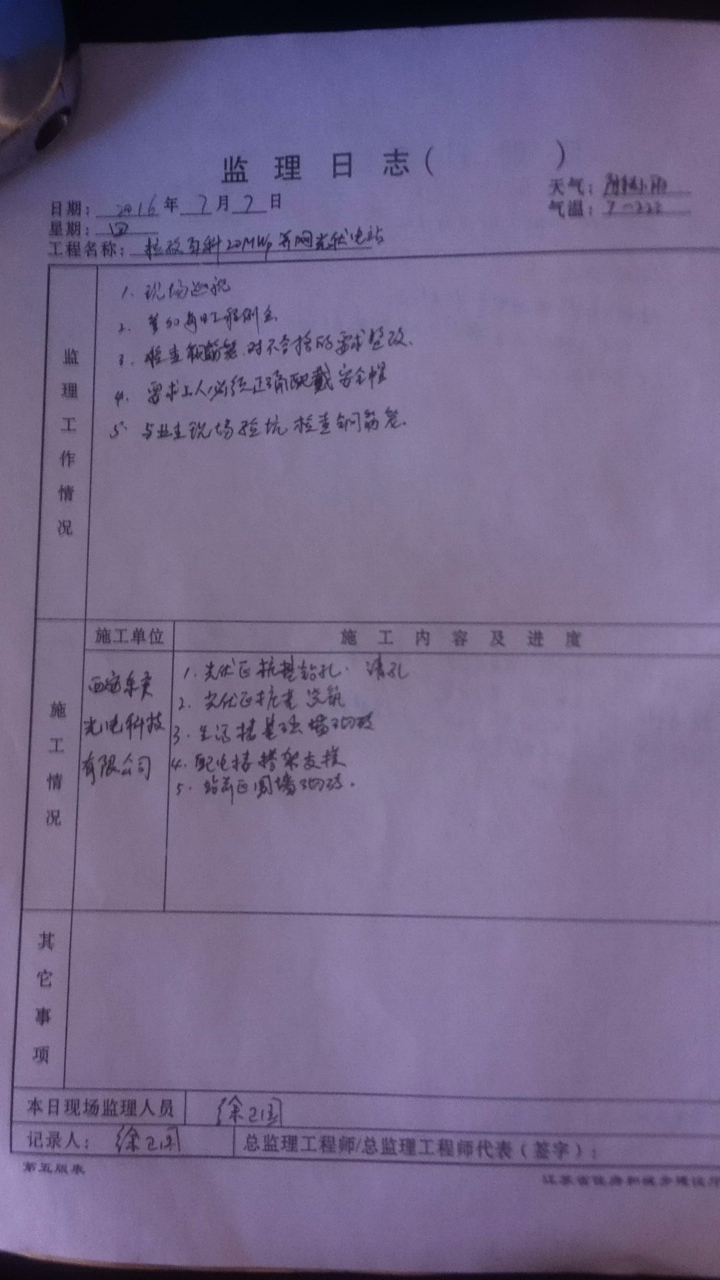 监 理 日 志 (          )
天气: 阴转小雨
日期: 2016 年 7 月 7 日
气温:
星期: 四
工程名称: 20MWp并网光伏电站
监理工作情况
1. 现场巡视
2. 参加每日工程例会
3. 检查钢筋笼,对不合格的要求整改.
4. 要求工人必须正确配戴安全帽
5. 与业主现场验坑 检查钢筋笼.
施工情况
施工单位
施 工 内 容 及 进 度
西安
光电科技
有限公司
1. 光伏区桩基钻孔. 清孔
2. 光伏区桩基浇筑
3. 生活楼基础墙砌砖
4. 配电楼搭架支模
5. 站前区围墙砌砖.
其它事项
本日现场监理人员 徐卫国
记录人: 徐卫国
总监理工程师/总监理工程师代表(签字):
第五版表
江苏省住房和城乡建设厅